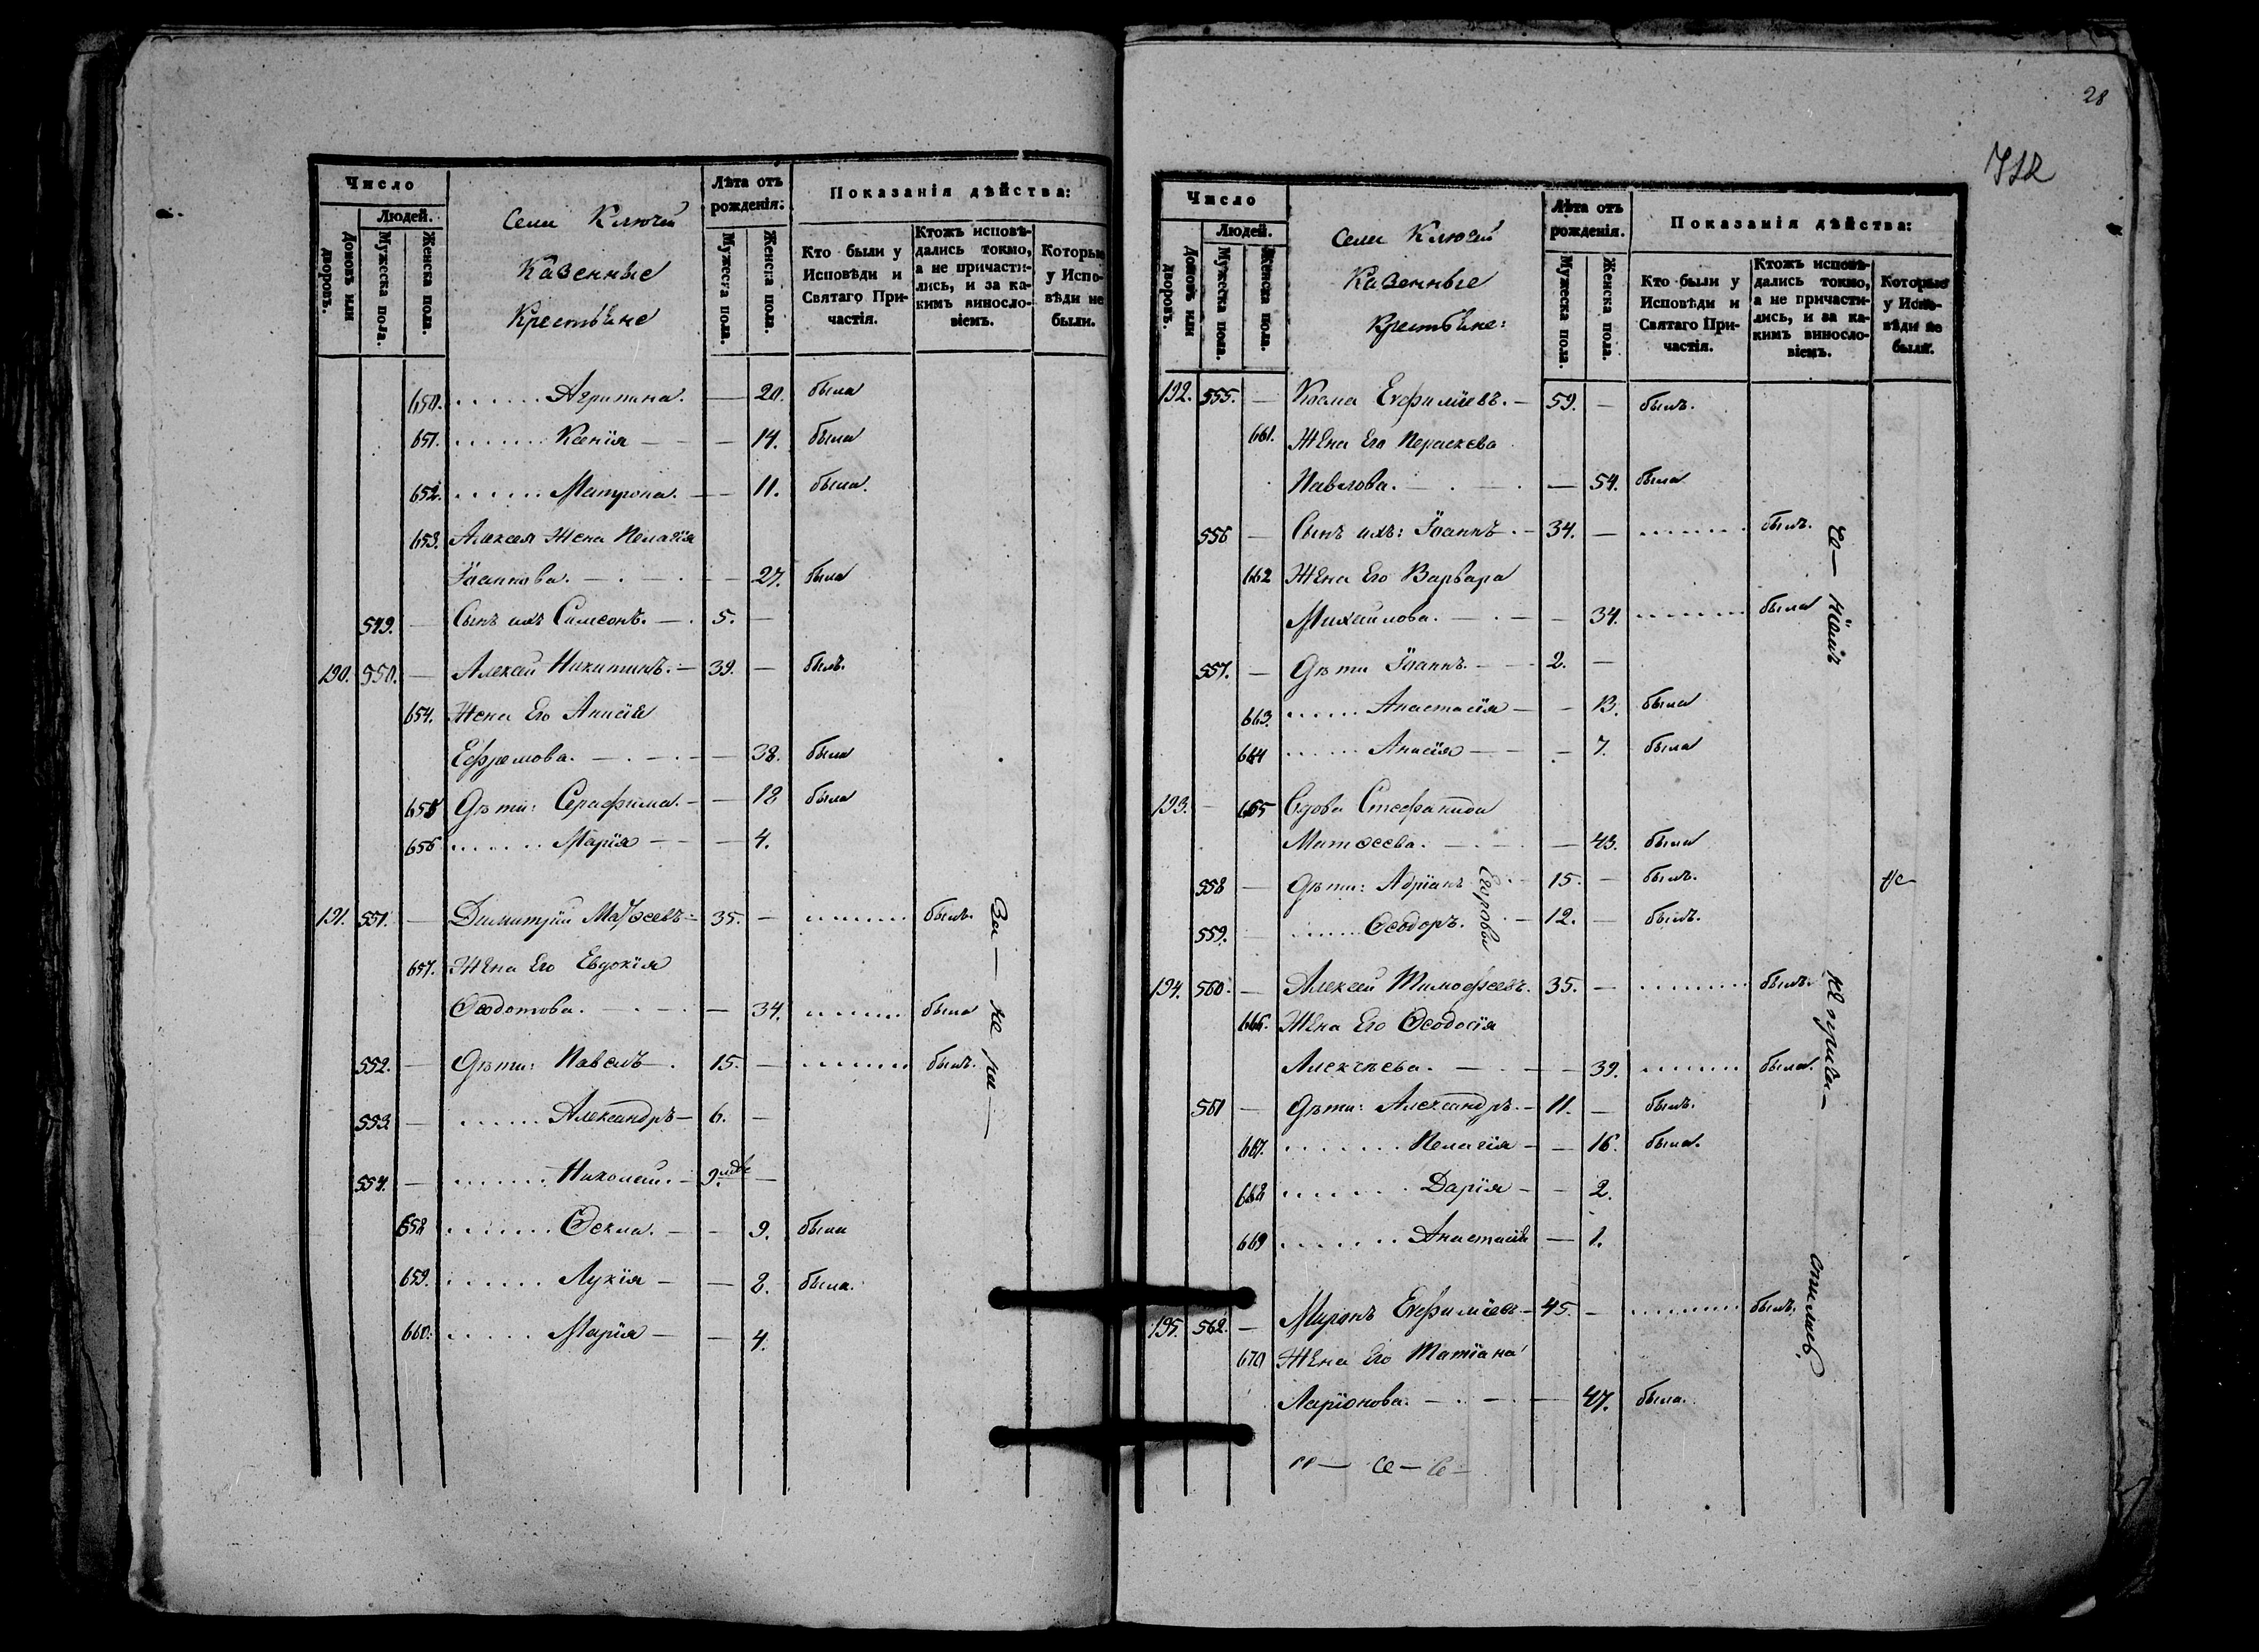 28
712
Число
Людей.
Домовъ или дворовъ.
Мужеска пола.
Женска пола.
Села Ключей
Казенные
Крестьяне
Лѣта отъ рожденія:
Мужеска пола.
Женска пола.
Показанія дѣйства:
Кто были у Исповѣди и Святаго Причастія.
Ктожъ исповѣдались токмо, а не причастились, и за какимъ винословіемъ.
Которые у Исповѣди не были.
650. . . . . . . Агрипина. — 20. была
651. . . . . . . Ксенія — — 14. была
652. . . . . . . Матрона. — 11. была.
653. Алексея Жена Пелагія
Іоаннова. — . — . — 27. была
549. — Сынъ ихъ Симеонъ. — 5. —
190. 550. — Алексей Никитинъ. — 39. — былъ.
654. Жена Его Анисія
Ефремова. — . — . — 38. была
655 Дѣти: Серафима. — — 12 была
656 . . . . . . Марія — — — 4.
191. 551. — Димитрій Маѳѳеевъ — 35. — . . . . . . былъ.
657. Жена Его Евдокія
Ѳеодотова. — . — . — 34. . . . . . . была
552. — Дѣти: Павелъ — . 15. — . . . . . . былъ.
553. — . . . . . . Александръ — 6. —
554. — . . . . . . Николай. — 9. мѣ —
658 . . . . . . Ѳекла. — — 9. была
659. . . . . . . Лукія — — 8. была.
660. . . . . . Марія — — 4.
За — не ра —
Число
Людей.
Домовъ или дворовъ.
Мужеска пола.
Женска пола.
Села Ключей
Казенные
Крестьяне:
Лѣта отъ рожденія.
Мужеска пола.
Женска пола.
Показанія дѣйства:
Кто были у Исповѣди и Святаго Причастія.
Ктожъ исповѣдались токмо, а не причастились, и за какимъ винословіемъ.
Которые у Исповѣди не были.
192. 555. — Косма Евфиміевъ. — 59. — былъ.
661. Жена Его Параскева
Павлова. — . — . — 54. была
556 — Сынъ ихъ: Іоаннъ. — 34. — . . . . . . былъ.
662 Жена Его Варвара
Михайлова. — . — — 34. . . . . . . была
557. — Дѣти Іоаннъ. — — 2. —
663. . . . . . Анастасія — — 13. была
664 . . . . . . Анисія — — — 7. была
193. — 665 Вдова Стефанида
Матѳеева. — . — . — 43. была
558 — Дѣти: Адріанъ . — 15. — былъ.
559. — . . . . . Ѳеодоръ. — 12. — былъ.
Егоровы
194. 560. — Алексей Тимофеевъ. 35. — . . . . . . былъ.
666. Жена Его Ѳеодосія
Алексѣева. — . — — 39. . . . . . . была.
561 — Дѣти: Александръ. — 11. — былъ.
667. . . . . . . . Пелагія — — 16. была.
668 . . . . . . Дарія — — 2.
669 . . . . . . . Анастасія — 1.
195. 562. — Миронъ Евфиміевъ — 45. — . . . . . . былъ.
670 Жена Его Татіана
Ларіонова. — . — . — 47. была.